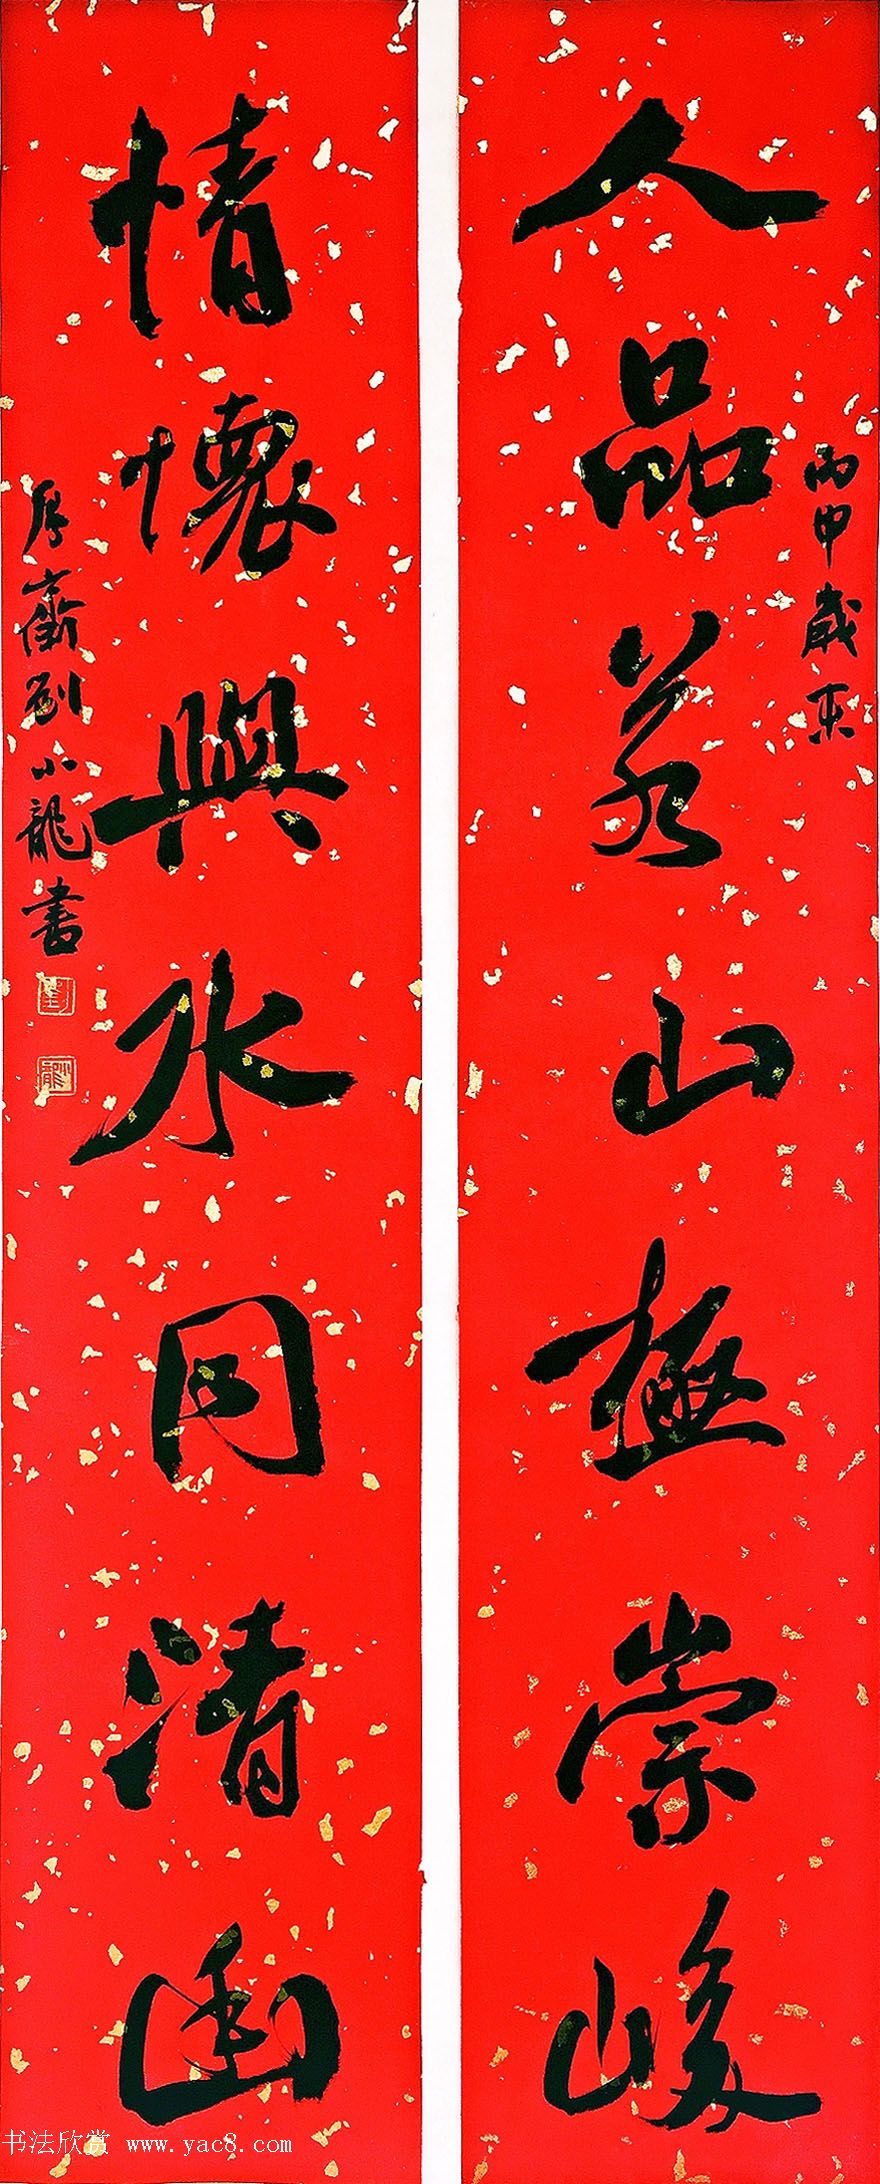 人品若山極崇峻
丙申歲末
情懷與水同清幽
厚齋劉小龍書
书法欣赏 www.yac8.com